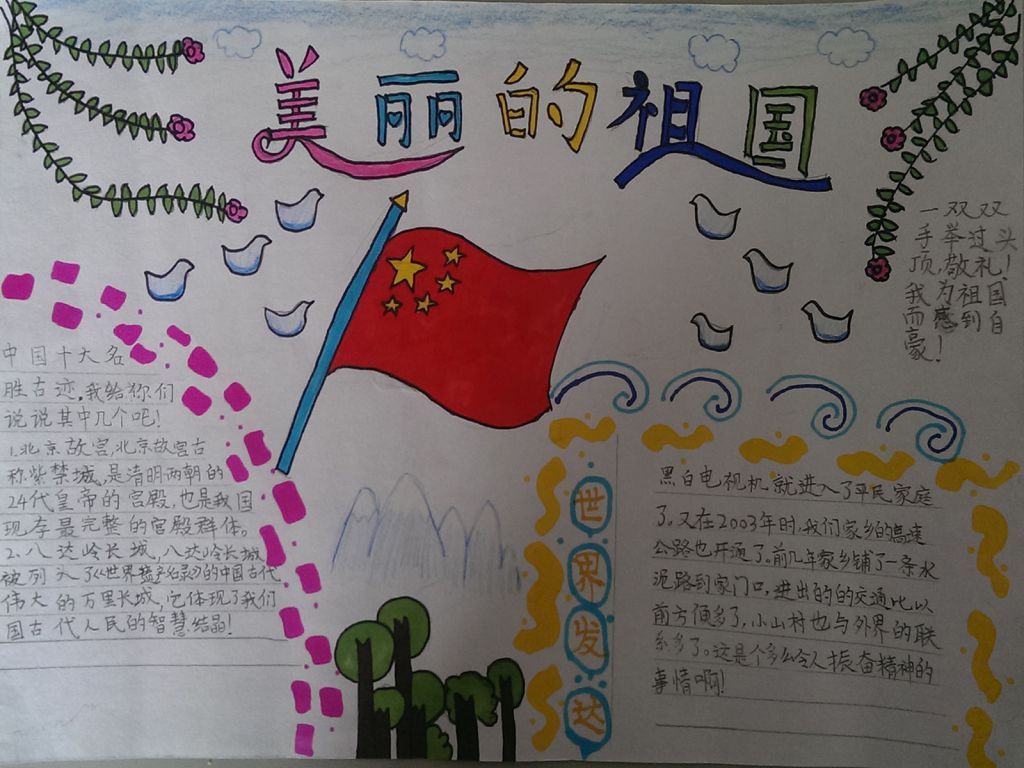 美丽的祖国
一双双
手举过头
顶,敬礼!
我为祖国
而感到自
豪!
中国十大名
胜古迹,我给你们
说说其中几个吧!
1.北京故宫,北京故宫古
称紫禁城,是清明两朝的
24代皇帝的宫殿,也是我国
现存最完整的宫殿群体。
2.八达岭长城,八达岭长城
被列入了《世界遗产名录》的中国古代
伟大的万里长城,它体现了我们
国古代人民的智慧结晶!
世界发达
黑白电视机就进入了平民家庭
了。又在2003年时,我们家乡的高速
公路也开通了。前几年家乡铺了一条水
泥路到家门口,进出的的交通比以
前方便多了,小山村也与外界的联
系多了。这是个多么令人振奋精神的
事情啊!